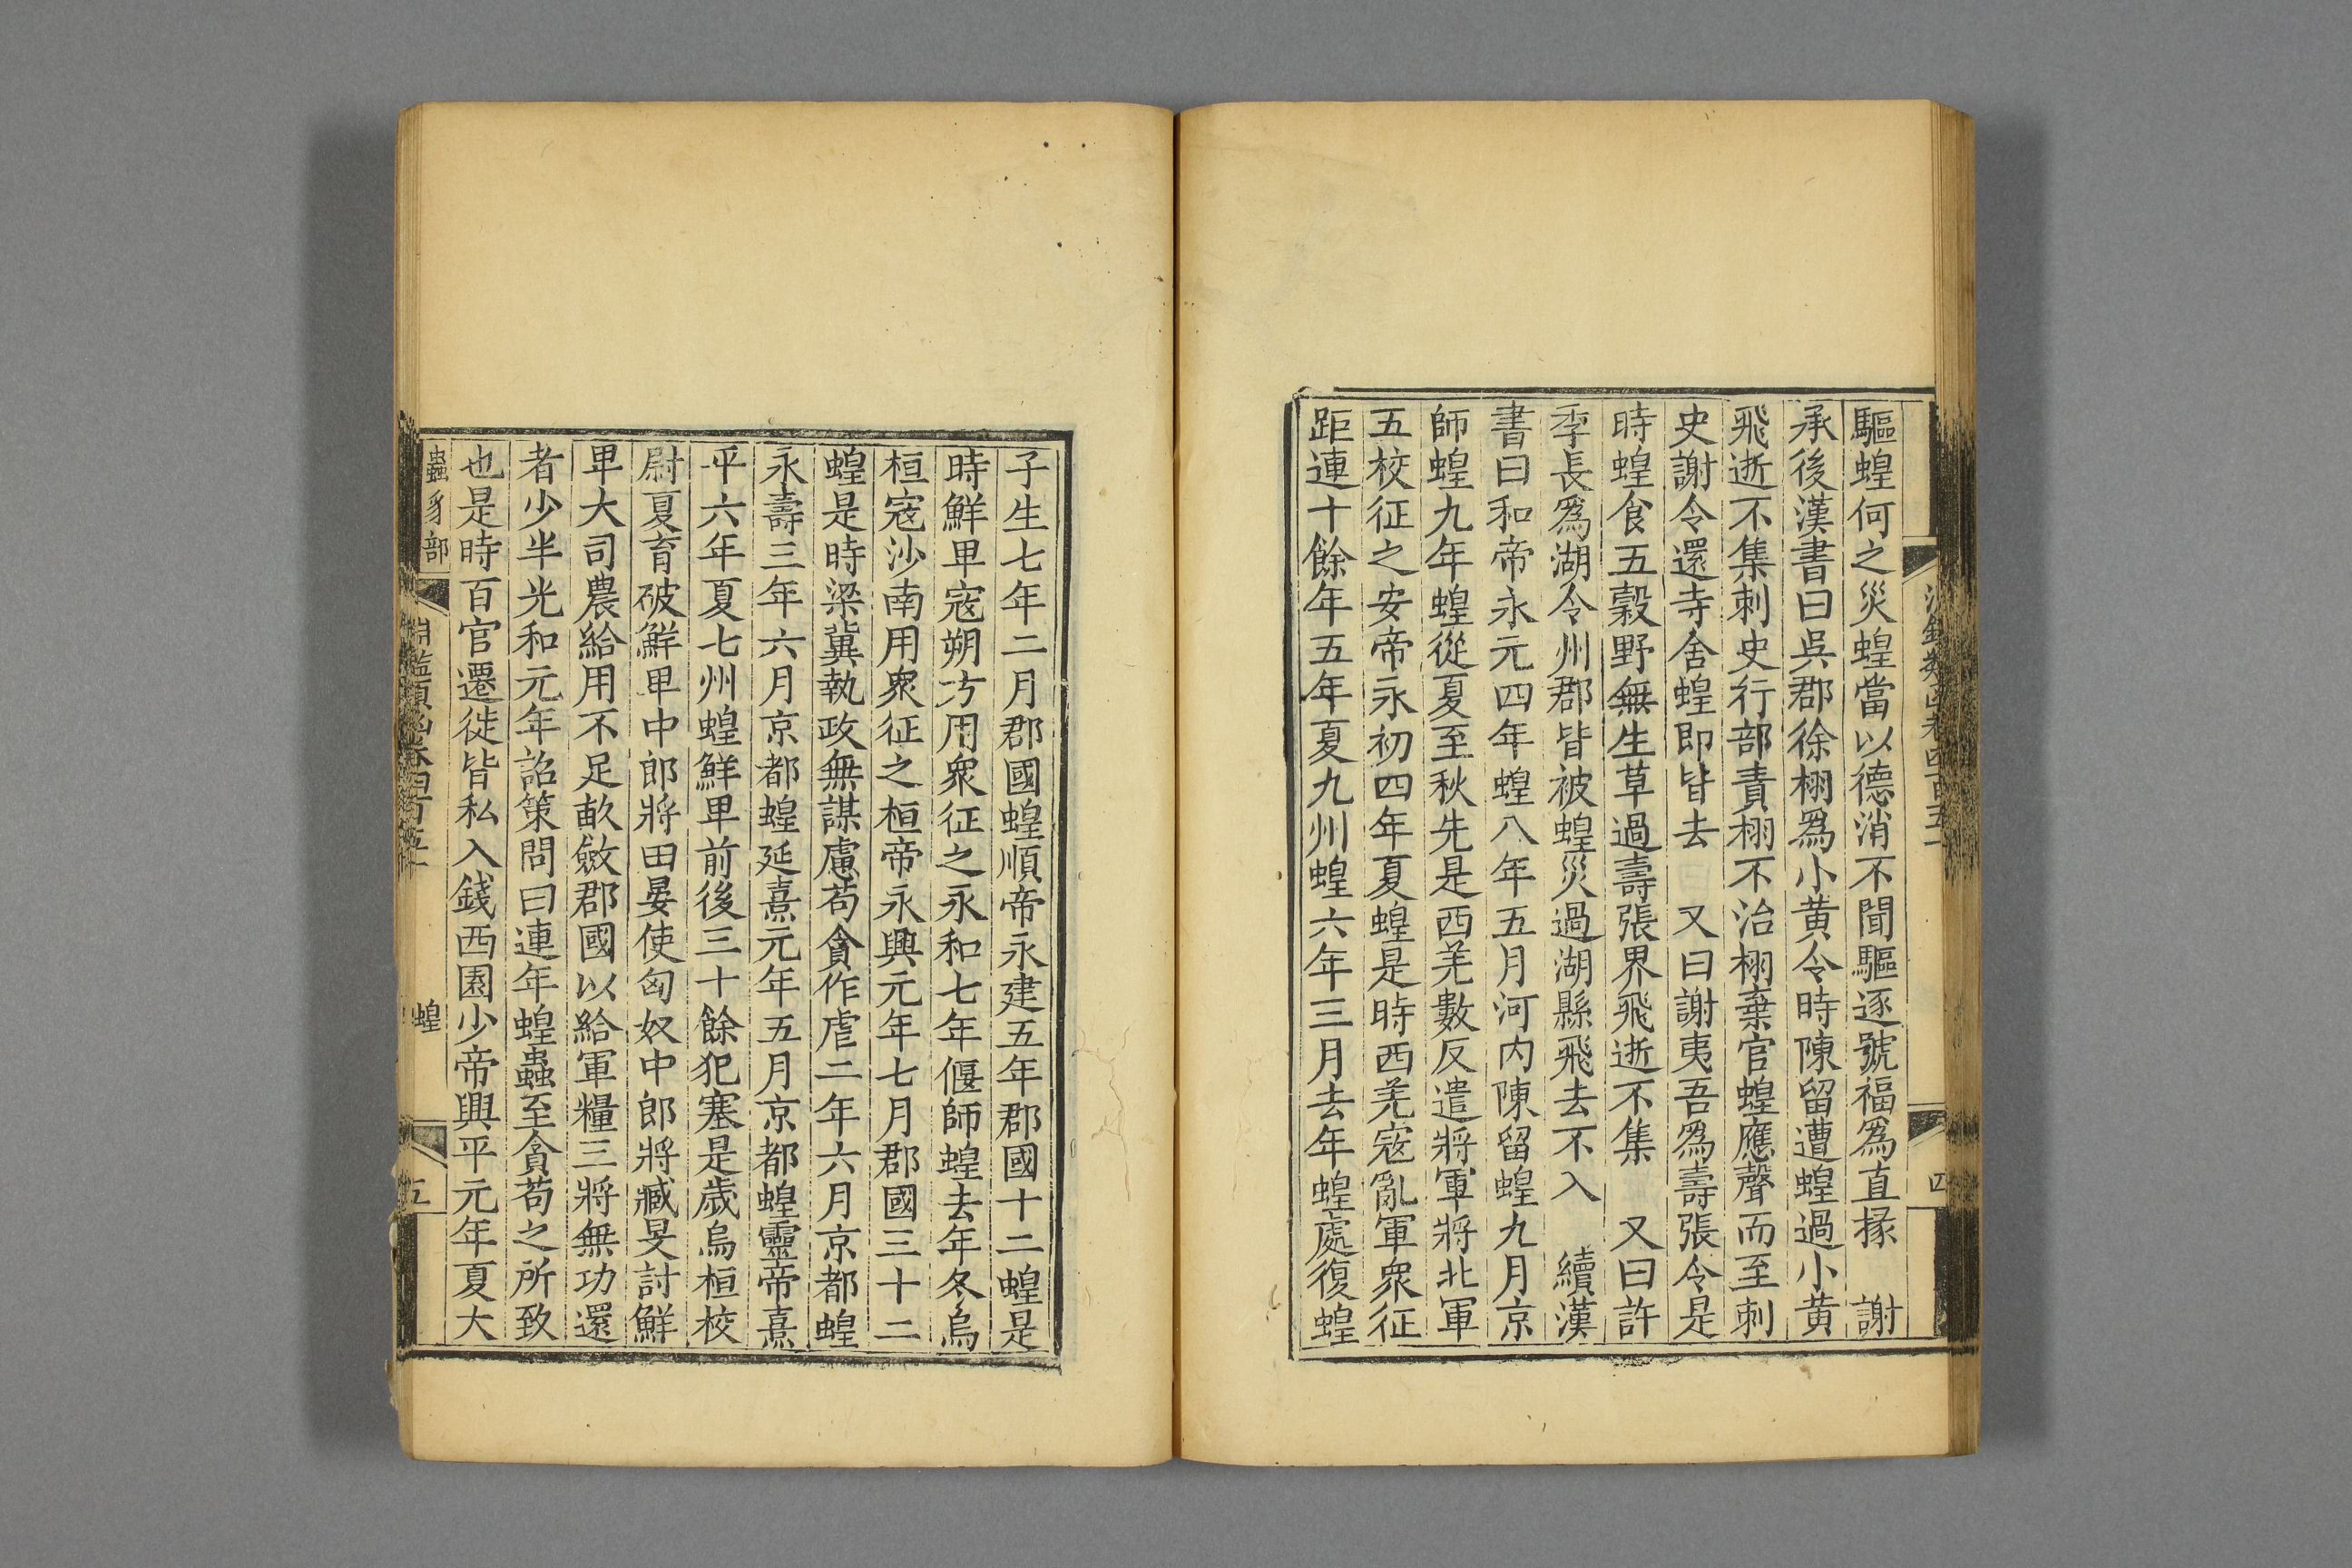 驅蝗何之災蝗當以德消不聞驅逐號福爲直掾　謝
承後漢書曰吳郡徐栩爲小黄令時陳留遭蝗過小黄
飛逝不集刺史行部責栩不治栩棄官蝗應聲而至刺
史謝令還寺舍蝗即皆去　又曰謝夷吾爲壽張令是
時蝗食五穀野無生草過壽張界飛逝不集　又曰許
季長爲湖令州郡皆被蝗災過湖縣飛去不入　續漢
書曰和帝永元四年蝗八年五月河内陳留蝗九月京
師蝗九年蝗從夏至秋先是西羌數反遣將軍將北軍
五校征之安帝永初四年夏蝗是時西羌寇亂軍衆征
距連十餘年五年夏九州蝗六年三月去年蝗處復蝗
子生七年二月郡國蝗順帝永建五年郡國十二蝗是
時鮮卑寇朔方用衆征之永和七年偃師蝗去年冬烏
桓寇沙南用衆征之桓帝永興元年七月郡國三十二
蝗是時梁冀執政無謀慮苟貪作虐二年六月京都蝗
永壽三年六月京都蝗延熹元年五月京都蝗靈帝熹
平六年夏七州蝗鮮卑前後三十餘犯塞是歲烏桓校
尉夏育破鮮卑中郎將田晏使匈奴中郎將臧旻討鮮
卑大司農給用不足畝斂郡國以給軍糧三將無功還
者少半光和元年詔策問曰連年蝗蟲至貪苟之所致
也是時百官遷徙皆私入錢西園少帝興平元年夏大
蟲豸部
淵鑑類函卷四百五十
蝗
五